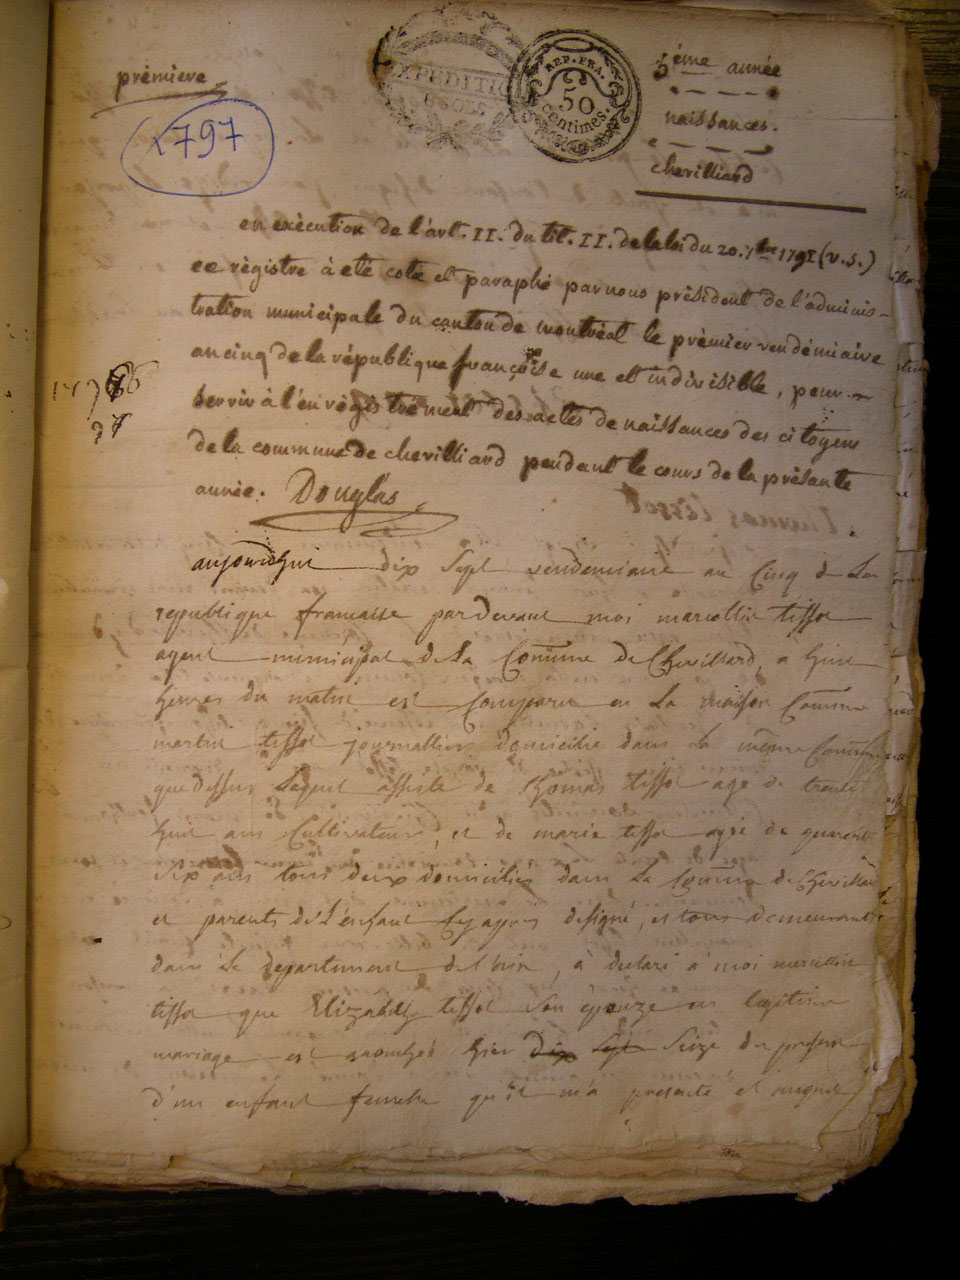 prémière
1797
EXPEDITIO
REP. FRA.
50
centimes.
5éme année
naissances.
chevilliard
en exècution de l'art. II. du tit. II. de la loi du 20. 7bre 1791 (v.s.)
ce règistre à eté coté et paraphé par nous président de l'adminis-
tration municipale du canton de montréal le prèmier vendémiaire
an cinq de la république françoise une et indivisible, pour
servir à l'enrègistrément des actes de naissances des citoyens
de la commune de chevilliard pendant le cours de la présante
année. Douglas
97
aujourdhui dix Sept vendemiaire an Cinq de La
republique francaise pardevant moi marcellin tissot
agent municipal de La Comune de Chevillard, a huit
heures du matin est Comparu en La maison Comune
martin tissot journallier domicilié dans La même Comune
que dessus Lequel assisté de thomas tissot agé de trente
huit ans Cultivateur, et de marie tissot agée de quarente
Six ans tous deux domiciliés dans La Comune de Chevillard
et parents de L'enfant Cy apres designé, et tous demeurants
dans Le departement de l'ain, à declaré a moi marcellin
tissot que Elizabeth tissot Son epouze en legitime
mariage est accouchée hier dix Sept Seize du present
d'un enfant femelle qu'il m'a presenté et auquel